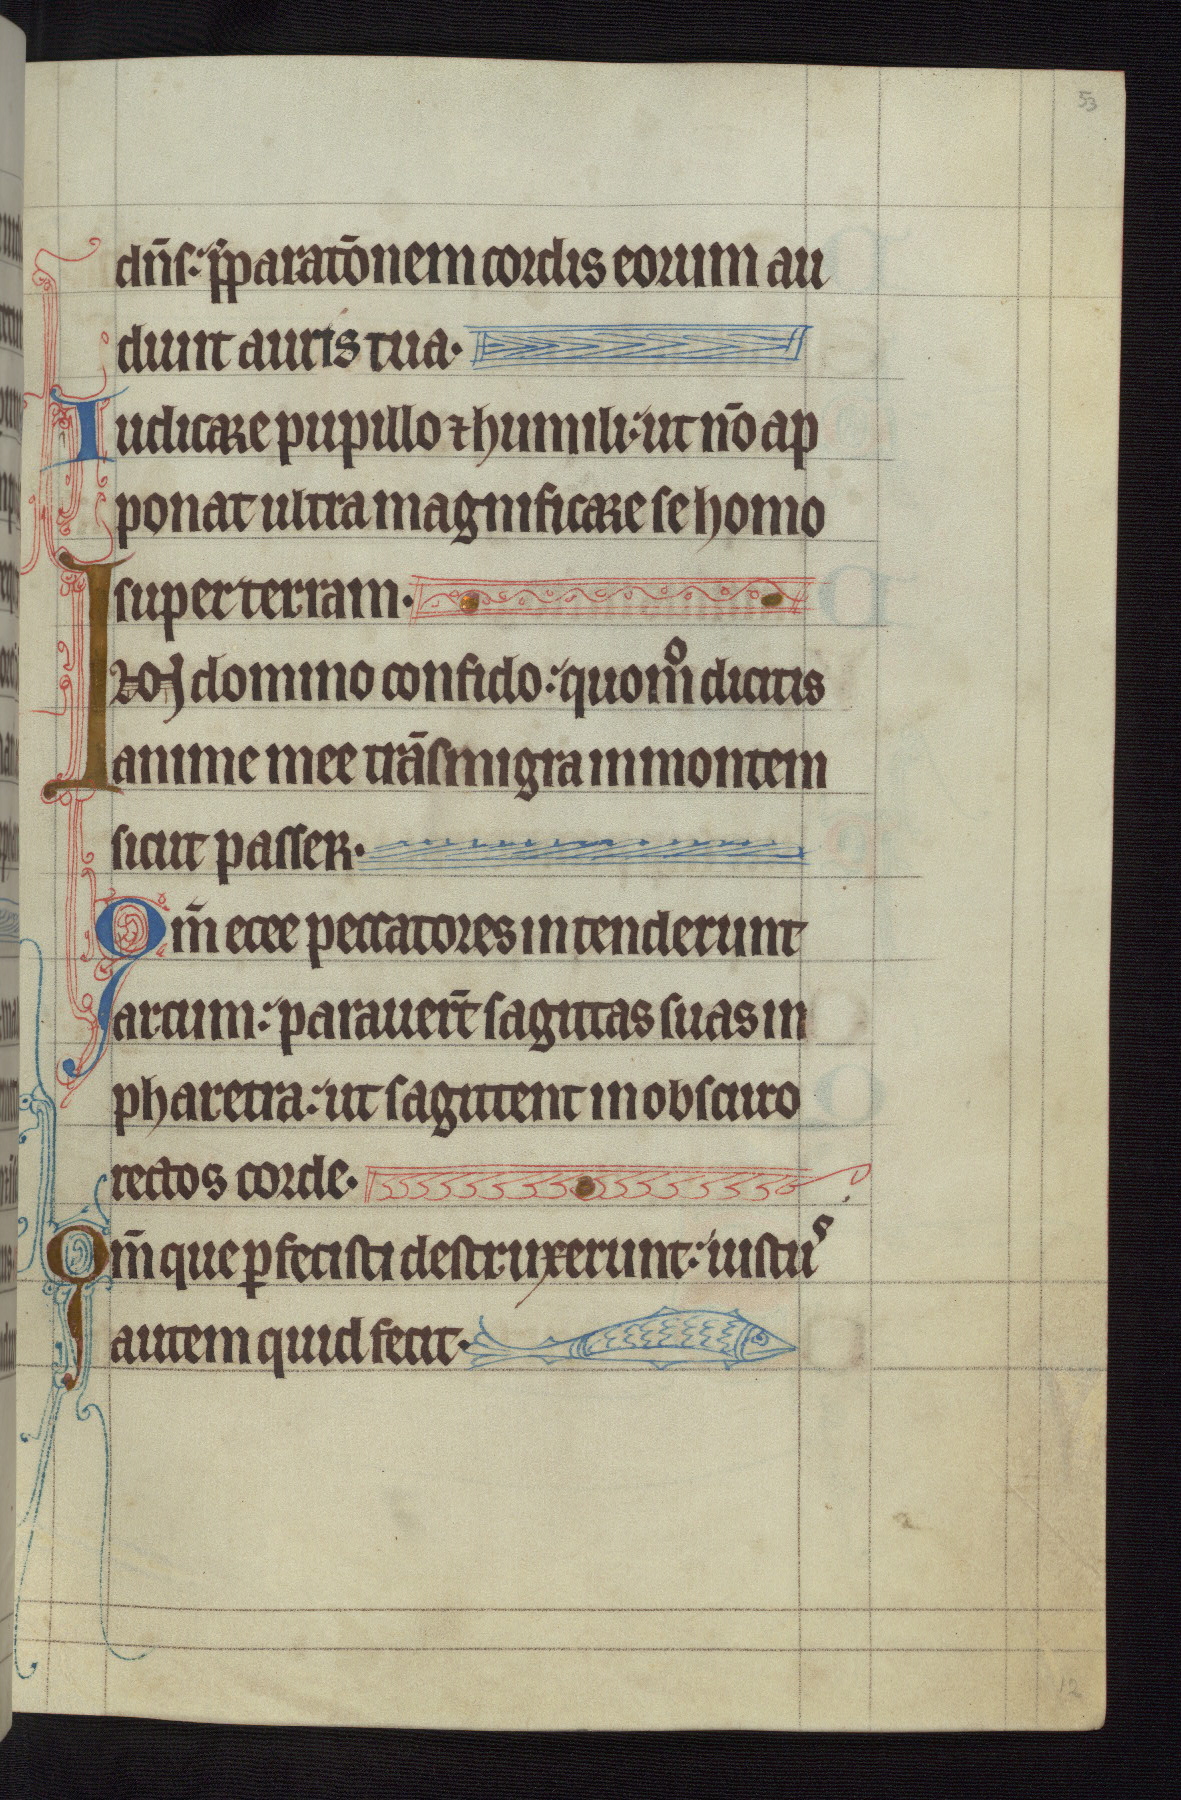 53
dn̄s: p̄paratōnem cordis eorum au
diuit auris tua.
Iudicare pupillo ⁊ humili: ut nō ap
ponat ultra magnificare se homo
super terram.
IN domino confido: quom̊ dicitis
anime mee trāsmigra in montem
sicut passer.
Qm̄ ecce peccatores intenderunt
arcum: parauer̄t sagittas suas in
pharetra: ut sagittent in obscuro
rectos corde.
Qm̄ que ꝑfecisti destruxerunt: iustuˢ
autem quid fecit.
12